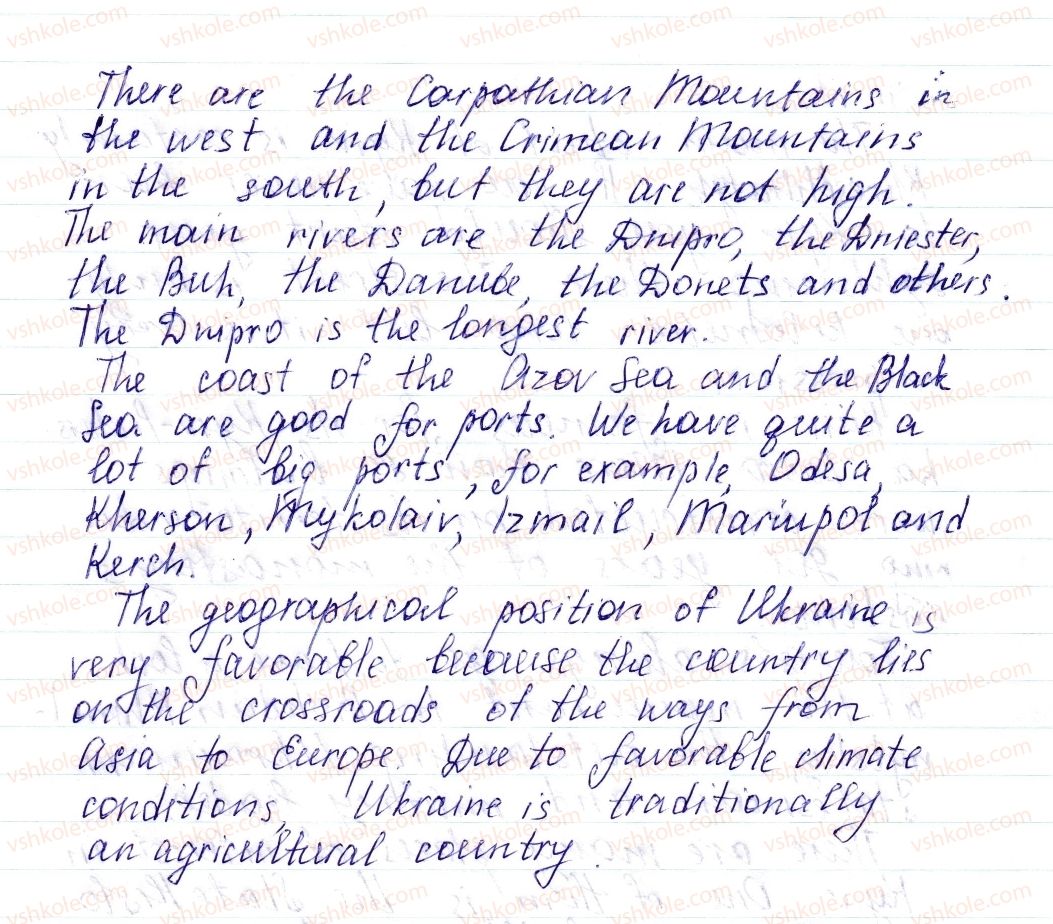 There are the Carpathian Mountains in
the west and the Crimean Mountains
in the south, but they are not high.
The main rivers are the Dnipro, the Dniester,
the Buh, the Danube, the Donets and others.
The Dnipro is the longest river.
The coast of the Azov Sea and the Black
Sea are good for ports. We have quite a
lot of big ports, for example, Odesa,
Kherson, Mykolaiv, Izmail, Mariupol and
Kerch.
The geographical position of Ukraine is
very favorable because the country lies
on the crossroads of the ways from
Asia to Europe. Due to favorable climate
conditions, Ukraine is traditionally
an agricultural country.